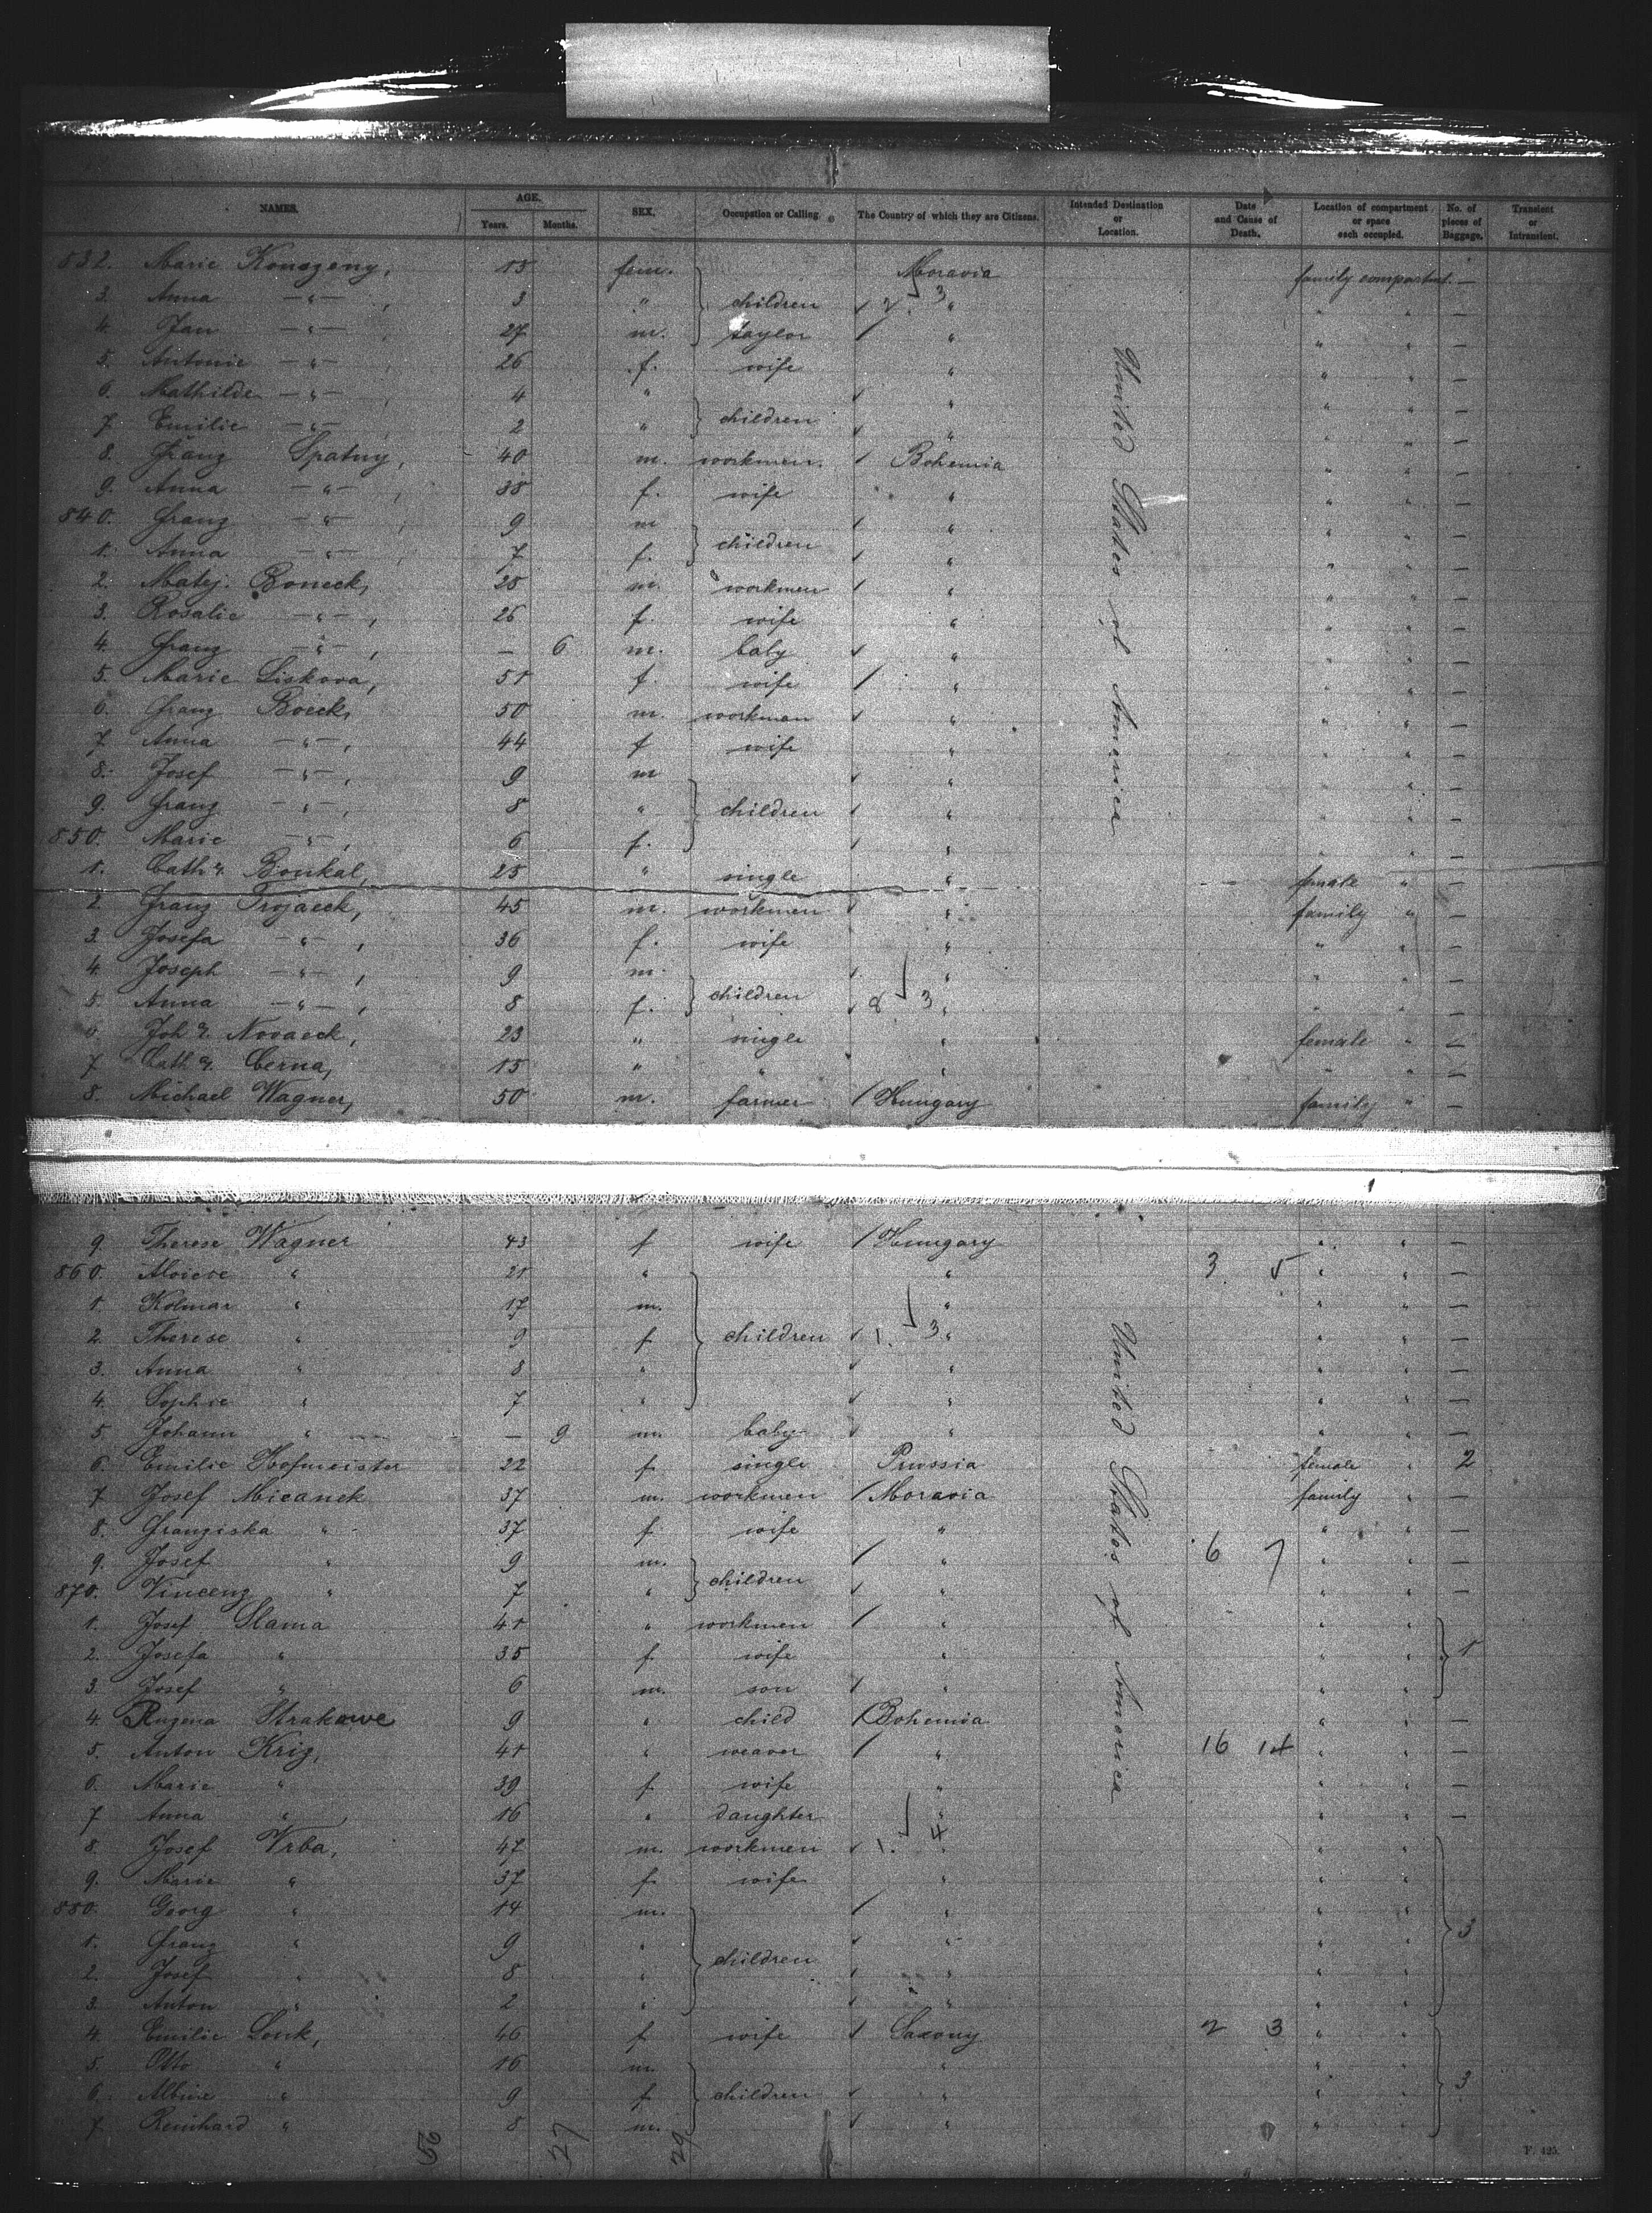 NAMES. AGE. Years. Months. SEX. Occupation or Calling. The Country of which they are Citizens. Intended Destination or Location. Date and Cause of Death. Location of compartment or space each occupied. No. of pieces of Baggage. Transient or Intransient.
832. Marie Konazeny, 15 fem. Moravia family compartmt. —
3. Anna —"— , 3 " children 2. 3 " " " —
4. Jan —"— 27 m. taylor " " " —
5. Antonie —"— , 26 f. wife " " " —
6. Mathilde —"— , 4 " " " " —
7. Emilie —"— , 2 " children " " " —
8. Franz Spatny, 40 m. workmen. Bohemia " " —
9. Anna —"— , 38 f. wife " " " —
840. Franz —"— , 9 m " " " —
1. Anna —"— , 7 f. children " " " —
2. Matej. Boneck, 28 m. workmen " " " —
3. Rosalie —"— , 26 f. wife " " " —
4. Franz —"— , — 6 m. baby " " " —
5. Marie Liskova, 51 f. wife " " " —
6. Franz Boeck, 50 m. workman " " " —
7. Anna —"— , 44 f wife " " " —
8. Josef —"— , 9 m " " " —
9. Franz —"— , 8 " children " " " —
850. Marie —"— , 6 f. " " " —
1. Cath a. Boukal, 25 " single " female " —
2. Franz Trojaeck, 45 m. workmen " family " —
3. Josefa —"— , 36 f. wife " " " —
4. Joseph —"— , 9 m. " " " —
5. Anna —"— , 8 f. children 2 3 " " " —
6. Joh a. Novaeck, 23 " single " female " —
7. Cath a. Cerna, 15 " " " " " —
8. Michael Wagner, 50 m. farmer Hungary family " —
United States of America
9. Therese Wagner 43 f wife Hungary " " —
860. Aloise " 21 " " 3 5 " " —
1. Kolmar " 17 m. " " " —
2. Therese " 9 f children 1. 3 " " " —
3. Anna " 8 " " " " —
4. Sophie " 7 " " " " —
5. Johann " — 9 m. baby " " " —
6. Emilie Hofmeister 22 f. single Prussia female " 2
7. Josef Micanek 37 m. workmen Moravia family " —
8. Franziska " 37 f. wife " " " —
9. Josef " 9 m. " 6 7 " " —
870. Vincenz " 7 " children " " " —
1. Josef Slama 41 " workmen " " "
2. Josefa " 35 f. wife " " " 1
3. Josef " 6 m. son " " "
4. Ruzena Strakowe 9 " child Bohemia " —
5. Anton Krig, 41 " weaver " 16 14 " " —
6. Marie " 39 f. wife " " " —
7. Anna " 16 " daughter " " " —
8. Josef Vrba, 47 m. workmen 1. 4 " " "
9. Marie " 37 f. wife " " "
880. Georg " 14 m. " " "
1. Franz " 9 " " " " 3
2. Josef " 8 " children " " "
3. Anton " 2 " " " "
4. Emilie Lenk, 46 f wife Saxony 2 3 " "
5. Otto " 16 m. " " "
6. Albine " 9 f children " " " 3
7. Reinhard " 8 m. " " "
United States of America
56 27 29
F. 425.